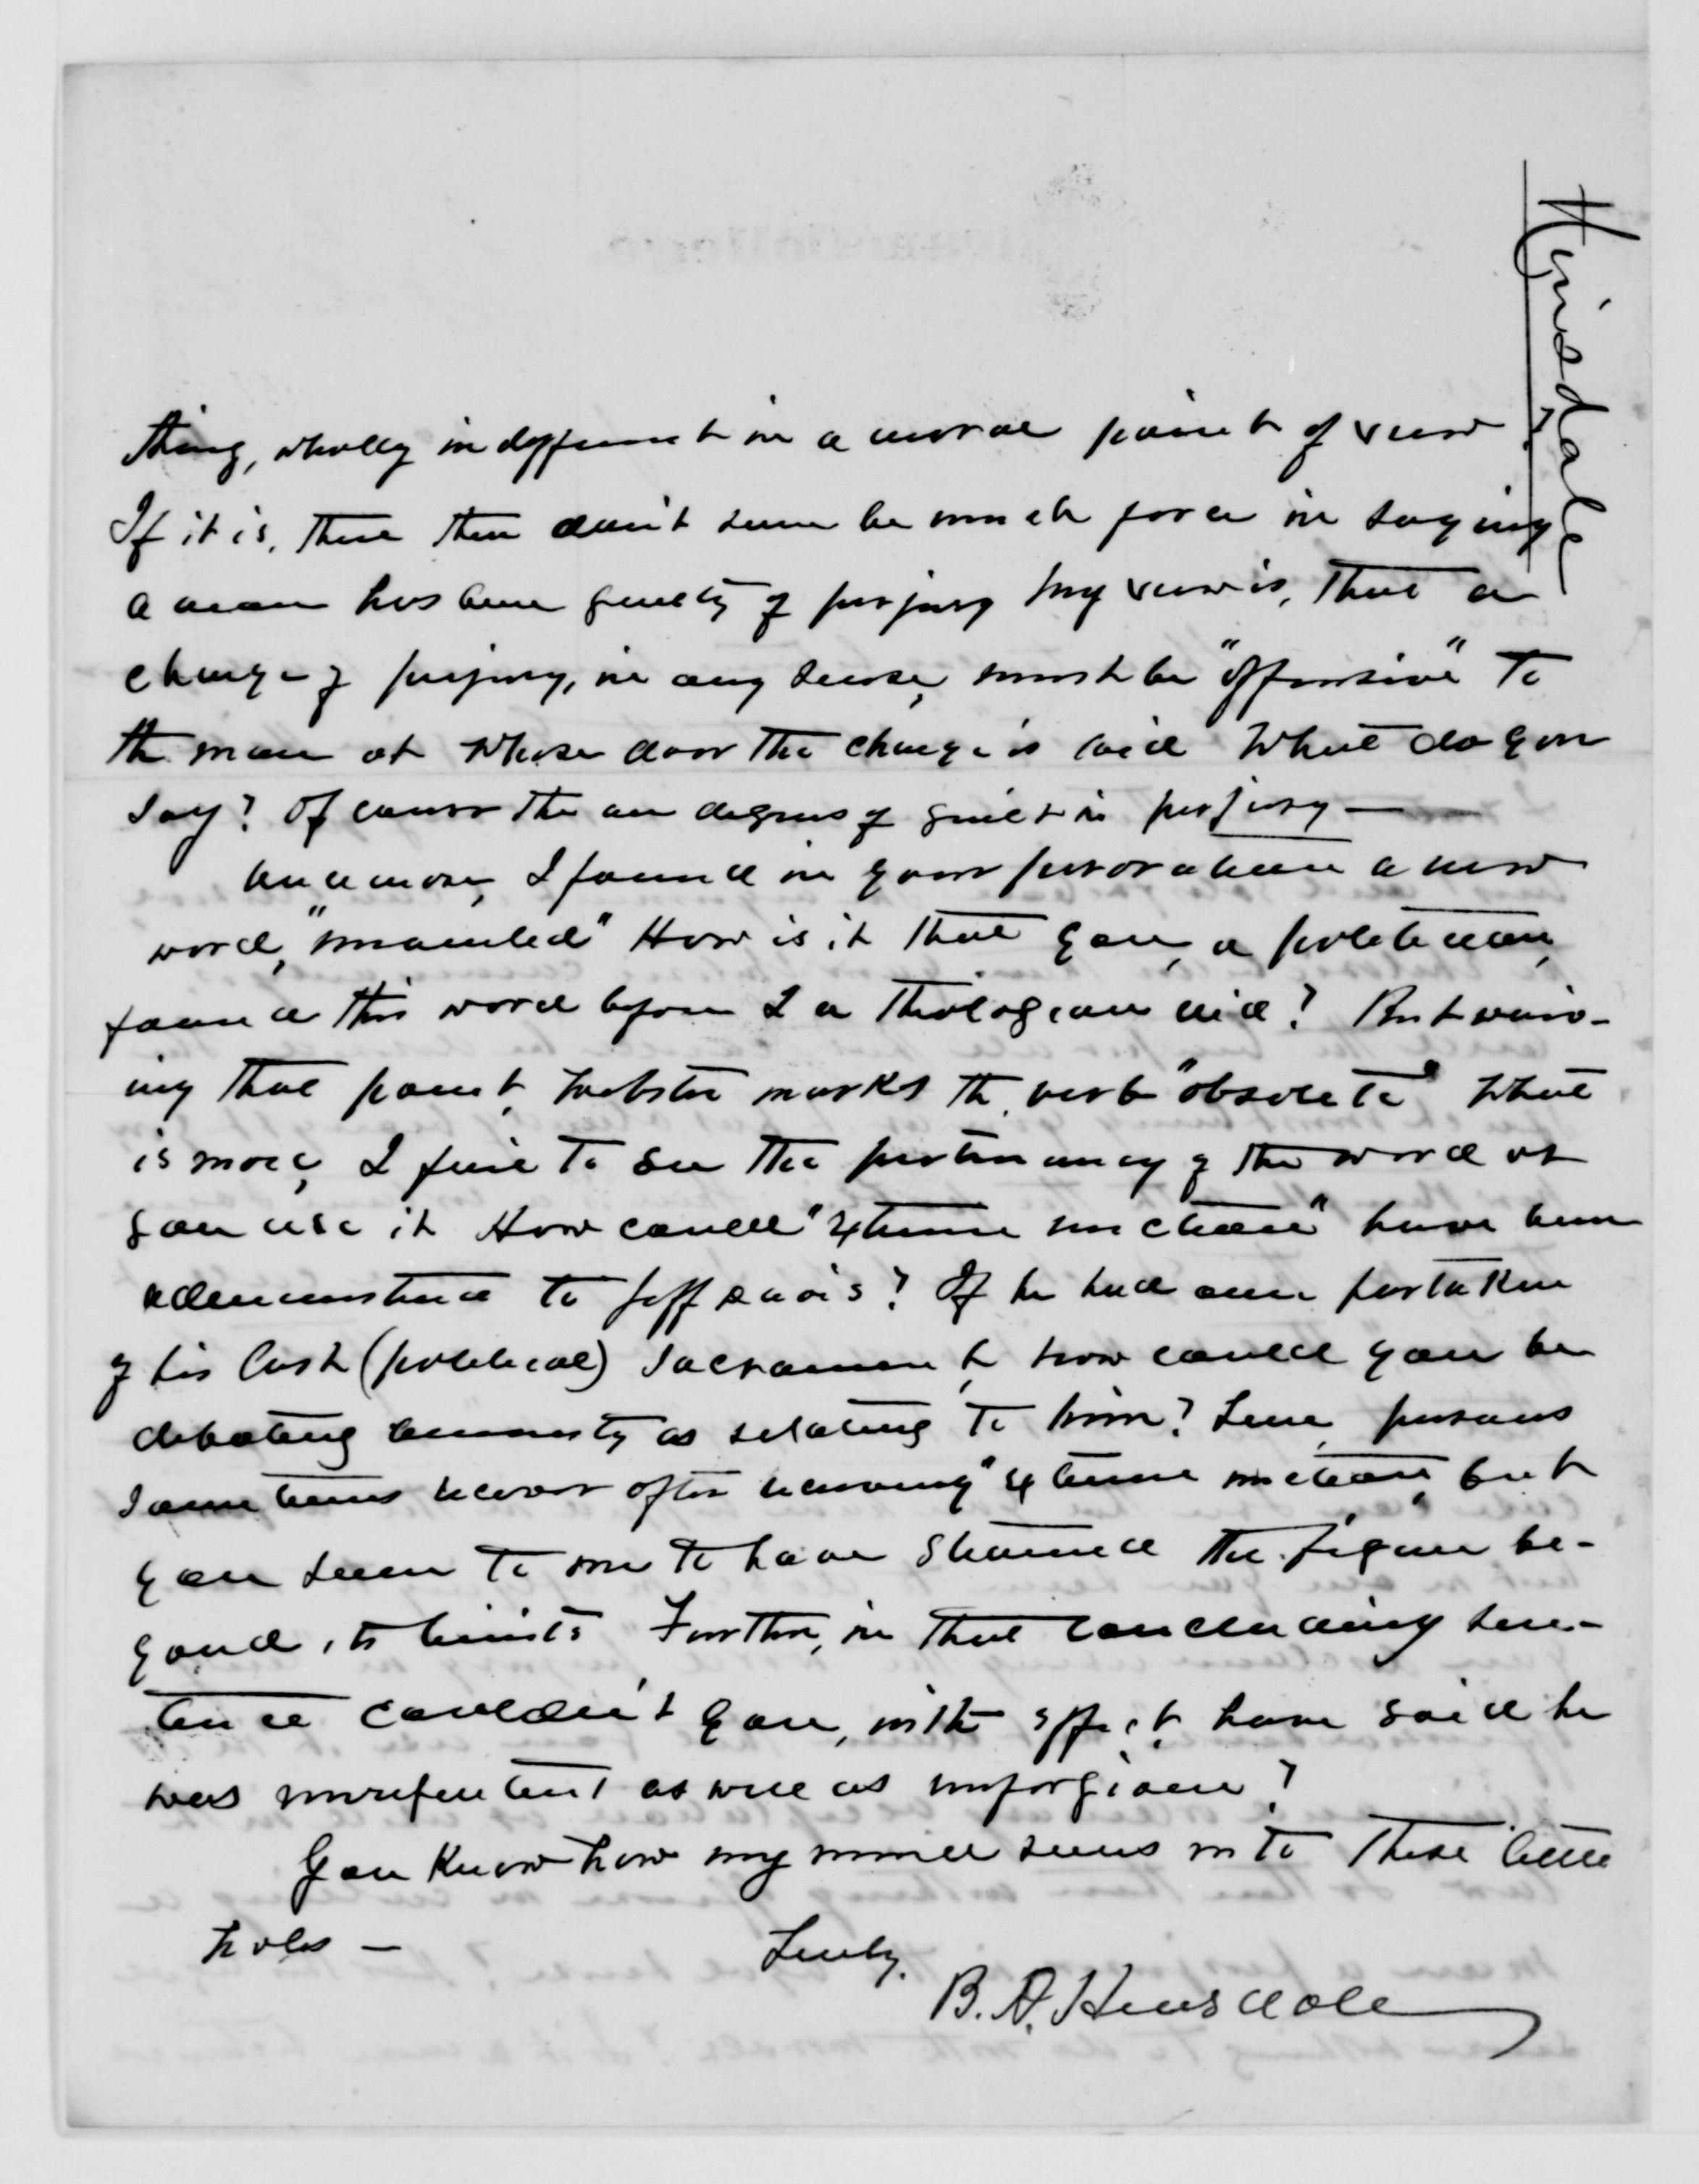 Hinsdale
thing, wholly indifferent in a moral point of view?
If it is, there then don't seem be much force in saying
a man has been guilty of perjury My view is, that a
charge of perjury, in any sense, must be "offensive" to
the man at whose door the charge is laid What do you
say? Of course the are degrees of guilt in perjury —
Once more, I found in your peroration a new
word, "unaneled" How is it that you, a politician,
found this word before I a theologian did? But waiv-
ing that point, Webster marks the verb "obsolete" What
is more, I fail to see the pertinency of the word as
you use it How could "extreme unction" have been
administered to Jeff Davis? If he had once partaken
of his last (political) sacrament, how could you be
debating amnesty as relating to him? True, persons
sometimes recover after receiving "extreme unction", but
you seem to me to have strained the figure be-
yond its limits Further, in that concluding sen-
tence couldn't you, with effect, have said he
was unrepentant as well as unforgiven?
You know how my mind runs into these little
holes —
Truly,
B. A. Hinsdale